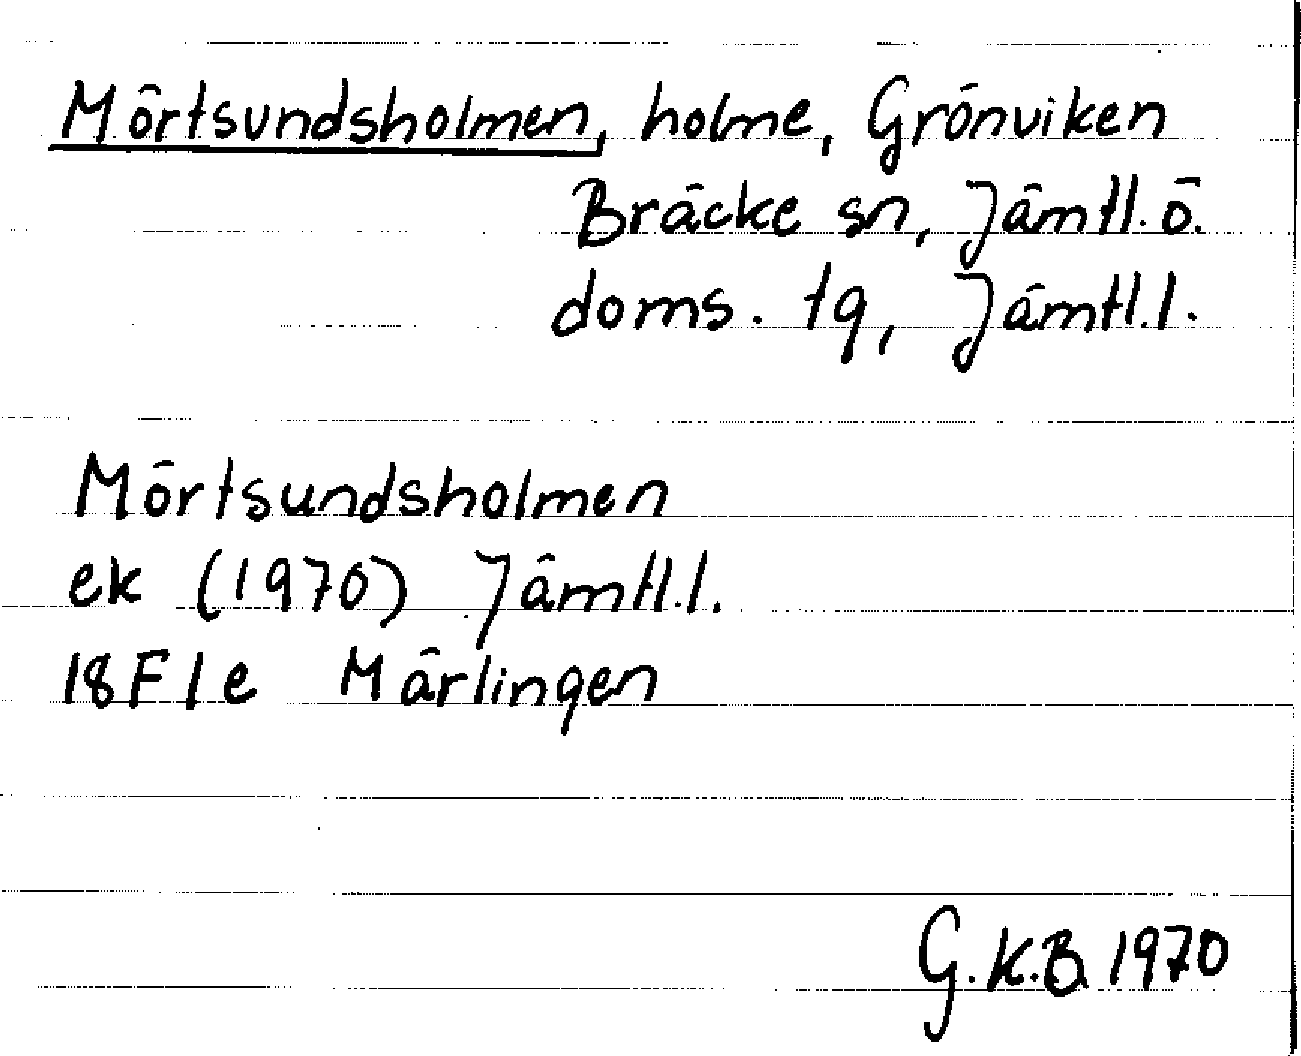 Mörtsundsholmen, holme, Grönviken
Bräcke sn, Jämtl. ö.
doms. tg, Jämtl. l.
Mörtsundsholmen
ek (1970) Jämtl. l.
18F1e Märlingen
G.K.B. 1970